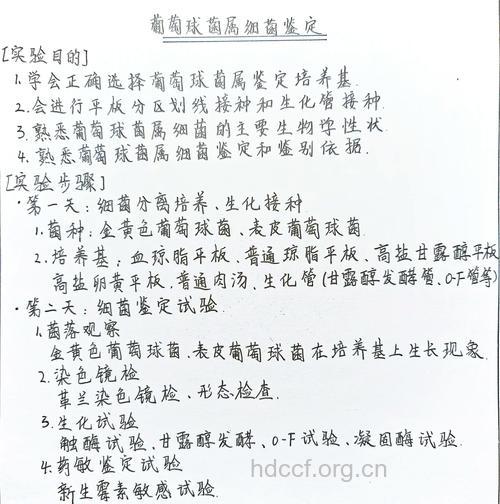 葡萄球菌属细菌鉴定
[实验目的]
1.学会正确选择葡萄球菌属鉴定培养基.
2.会进行平板分区划线接种和生化管接种.
3.熟悉葡萄球菌属细菌的主要生物学性状.
4.熟悉葡萄球菌属细菌鉴定和鉴别依据.
[实验步骤]
·第一天:细菌分离培养、生化接种
1.菌种:金黄色葡萄球菌、表皮葡萄球菌.
2.培养基:血琼脂平板、普通琼脂平板、高盐甘露醇平板
高盐卵黄平板、普通肉汤、生化管(甘露醇发酵管、O-F管等)
·第二天:细菌鉴定试验.
1.菌落观察
金黄色葡萄球菌、表皮葡萄球菌在培养基上生长现象.
2.染色镜检
革兰染色镜检、形态检查.
3.生化试验
触酶试验、甘露醇发酵、O-F试验、凝固酶试验.
4.药敏鉴定试验
新生霉素敏感试验.
hdccf.org.cn